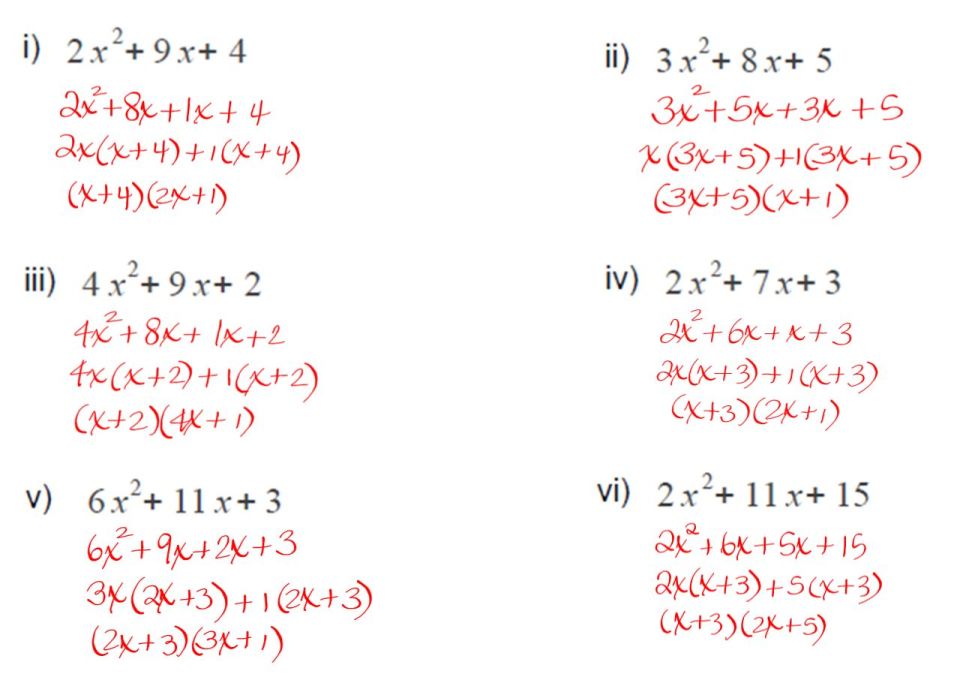 i) 2x²+ 9x+ 4
2x²+8x+1x+4
2x(x+4)+1(x+4)
(x+4)(2x+1)
ii) 3x²+ 8x+ 5
3x²+5x+3x+5
x(3x+5)+1(3x+5)
(3x+5)(x+1)
iii) 4x²+ 9x+ 2
4x²+8x+1x+2
4x(x+2)+1(x+2)
(x+2)(4x+1)
iv) 2x²+ 7x+ 3
2x²+6x+x+3
2x(x+3)+1(x+3)
(x+3)(2x+1)
v) 6x²+ 11x+ 3
6x²+9x+2x+3
3x(2x+3)+1(2x+3)
(2x+3)(3x+1)
vi) 2x²+ 11x+ 15
2x²+6x+5x+15
2x(x+3)+5(x+3)
(x+3)(2x+5)